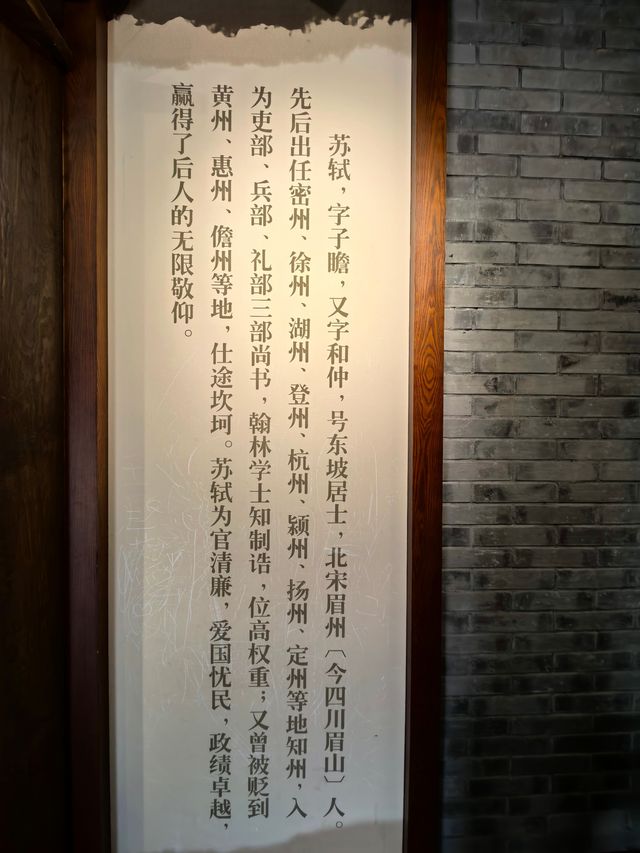 苏轼，字子瞻，又字和仲，号东坡居士，北宋眉州〔今四川眉山〕人。
先后出任密州、徐州、湖州、登州、杭州、颍州、扬州、定州等地知州，入
为吏部、兵部、礼部三部尚书，翰林学士知制诰，位高权重；又曾被贬到
黄州、惠州、儋州等地，仕途坎坷。苏轼为官清廉，爱国忧民，政绩卓越，
赢得了后人的无限敬仰。